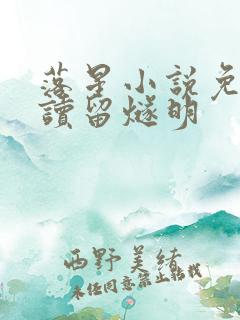 落星小説免
讀留燧明
西野美緒
未经同意禁止转载